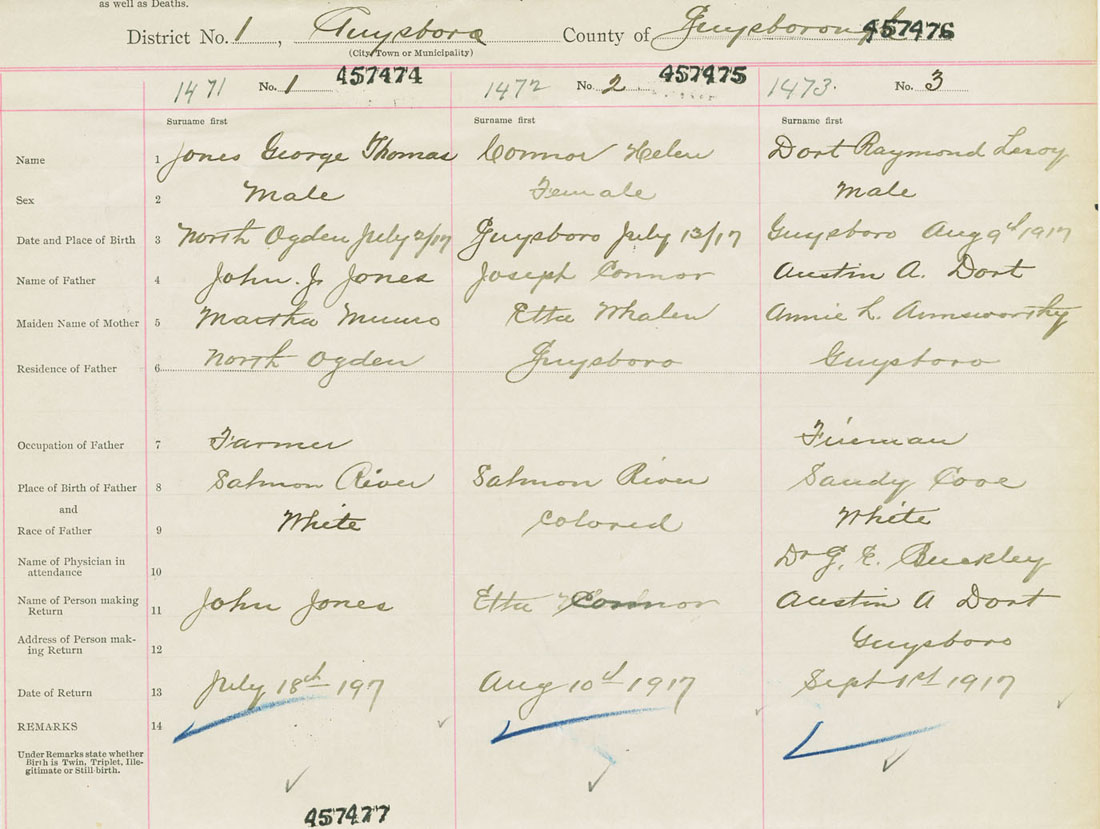 as well as Deaths.
District No. 1, Guysboro County of Guysborough 457476
(City, Town or Municipality)
1471 No. 1 457474 1472 No. 2 457475 1473. No. 3
Surname first Surname first Surname first
Name 1 Jones George Thomas Connor Helen Dort Raymond Leroy
Sex 2 Male Female Male
Date and Place of Birth 3 North Ogden July 2/17 Guysboro July 13/17 Guysboro Aug 9th 1917
Name of Father 4 John. J. Jones Joseph Connor Austin A. Dort
Maiden Name of Mother 5 Martha Munro Etta Whalen Annie L. Armsworthy
Residence of Father 6 North Ogden Guysboro Guysboro
Occupation of Father 7 Farmer Fireman
Place of Birth of Father 8 Salmon River Salmon River Sandy Cove
and
Race of Father 9 White Colored White
Name of Physician in
attendance 10 Dr G. E. Buckley
Name of Person making
Return 11 John Jones Etta Connor Austin A Dort
Address of Person mak-
ing Return 12 Guysboro
Date of Return 13 July 18th 197 Aug 10th 1917 Sept 1st 1917
REMARKS 14
Under Remarks state whether
Birth is Twin, Triplet, Ille-
gitimate or Still-birth.
457477